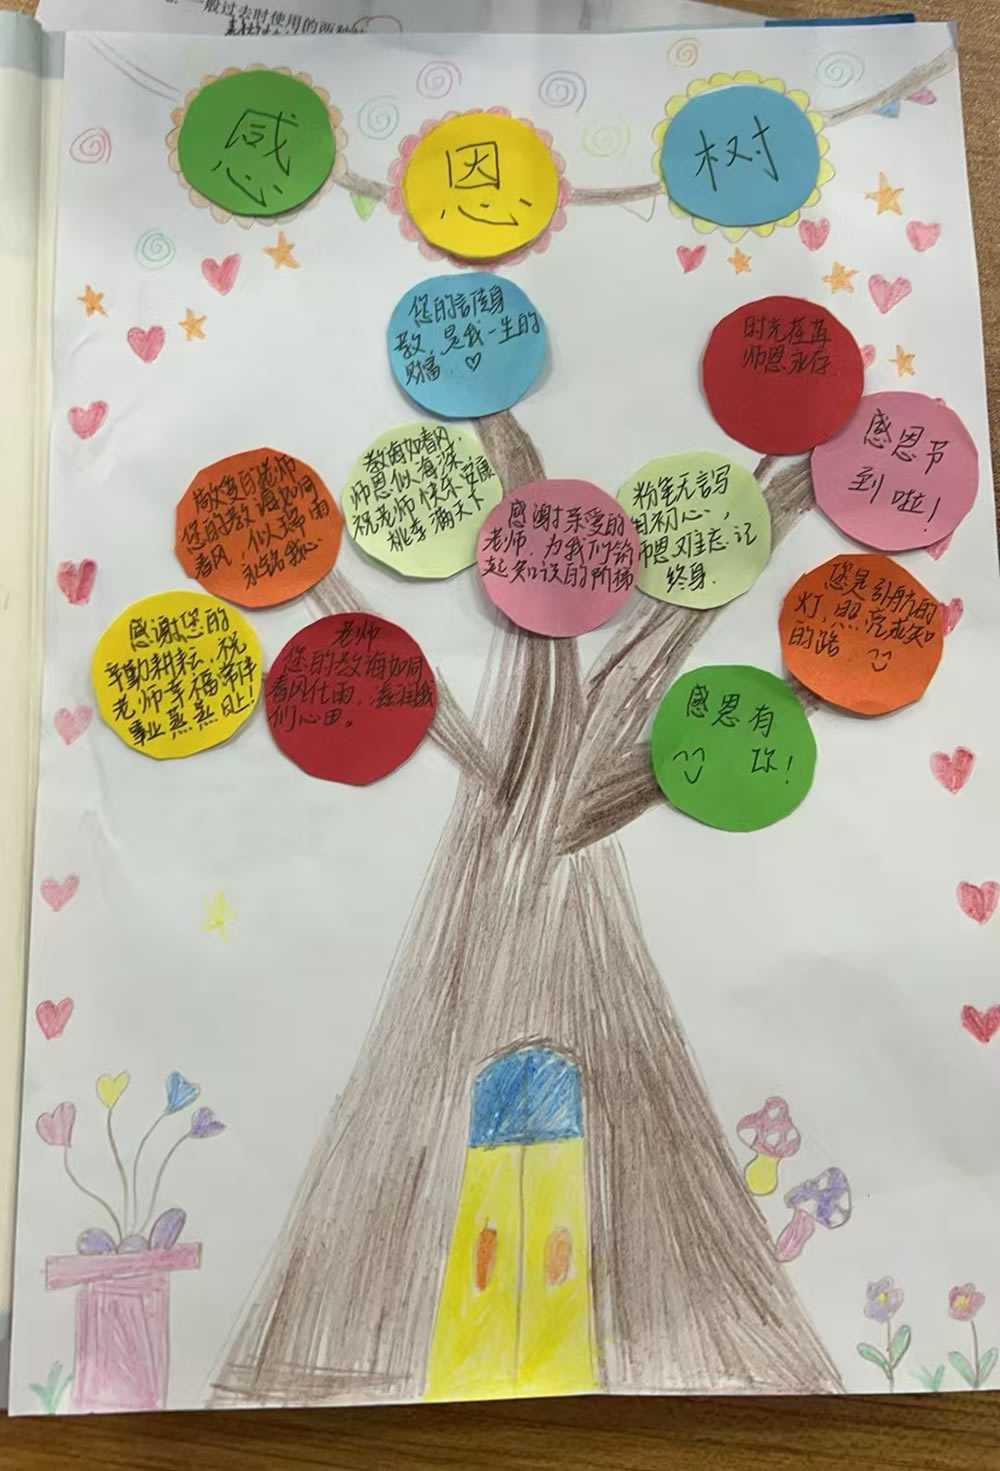 一般过去时使用的两种
感 恩 树
您的言传身
教,是我一生的
财富.♡
时光荏苒
师恩永存
感恩节
到啦!
教诲如春风,
师恩似海深
祝老师快乐安康
桃李满天下
敬爱的老师
您的教诲如同
春风,似瑞雨
永铭我心.
感谢亲爱的
老师,为我们筑
起知识的阶梯
粉笔无言写
初心,
师恩难忘记
终身.
您是引航的
灯,照亮求知
的路
感谢您的
辛勤耕耘,祝
老师幸福常伴
事业蒸蒸日上!
老师
您的教诲如同
春风化雨,滋润我
们心田。
感恩有
你!